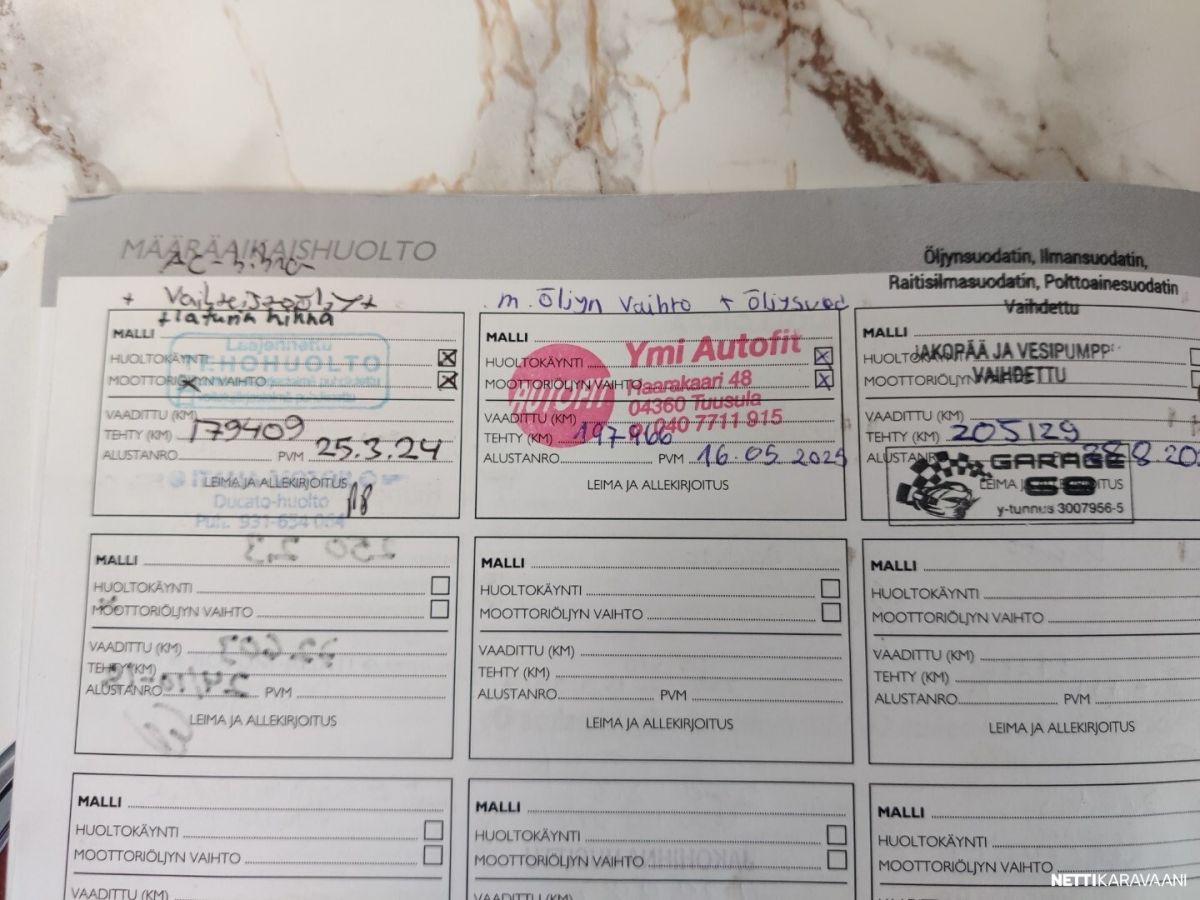 MÄÄRÄAIKAISHUOLTO
AC-hihna
+ Vaihteistoöljyt
+ laturin hihna
MALLI
Laajennettu
TEHOHUOLTO
HUOLTOKÄYNTI
MOOTTORIÖLJYN VAIHTO
VAADITTU (KM)
TEHTY (KM) 179409
ALUSTANRO PVM 25.3.24
LEIMA JA ALLEKIRJOITUS
Ducato-huolto
m. Öljyn vaihto + Öljysuod
MALLI
Ymi Autofit
AUTOFIT
HUOLTOKÄYNTI
MOOTTORIÖLJYN VAIHTO
Haarakaari 48
04360 Tuusula
VAADITTU (KM)
p. 040 7711 915
TEHTY (KM) 197966
ALUSTANRO PVM 16.05.2025
LEIMA JA ALLEKIRJOITUS
Öljynsuodatin, Ilmansuodatin,
Raitisilmasuodatin, Polttoainesuodatin
Vaihdettu
MALLI
HUOLTOKÄYNTI
JAKOPÄÄ JA VESIPUMPP
MOOTTORIÖLJYN
VAIHDETTU
VAADITTU (KM)
TEHTY (KM) 205129
ALUSTANR 28.8.20
GARAGE
LEIMA JA ALLEKIRJOITUS
y-tunnus 3007956-5
MALLI
HUOLTOKÄYNTI
MOOTTORIÖLJYN VAIHTO
VAADITTU (KM)
TEHTY (KM)
ALUSTANRO PVM
LEIMA JA ALLEKIRJOITUS
MALLI
HUOLTOKÄYNTI
MOOTTORIÖLJYN VAIHTO
VAADITTU (KM)
TEHTY (KM)
ALUSTANRO PVM
LEIMA JA ALLEKIRJOITUS
MALLI
HUOLTOKÄYNTI
MOOTTORIÖLJYN VAIHTO
VAADITTU (KM)
TEHTY (KM)
ALUSTANRO PVM
LEIMA JA ALLEKIRJOITUS
MALLI
HUOLTOKÄYNTI
MOOTTORIÖLJYN VAIHTO
VAADITTU (KM)
MALLI
HUOLTOKÄYNTI
MOOTTORIÖLJYN VAIHTO
VAADITTU (KM)
MALLI
HUOLTOKÄYNTI
MOOTTORIÖLJYN VAIHTO
NETTIKARAVAANI